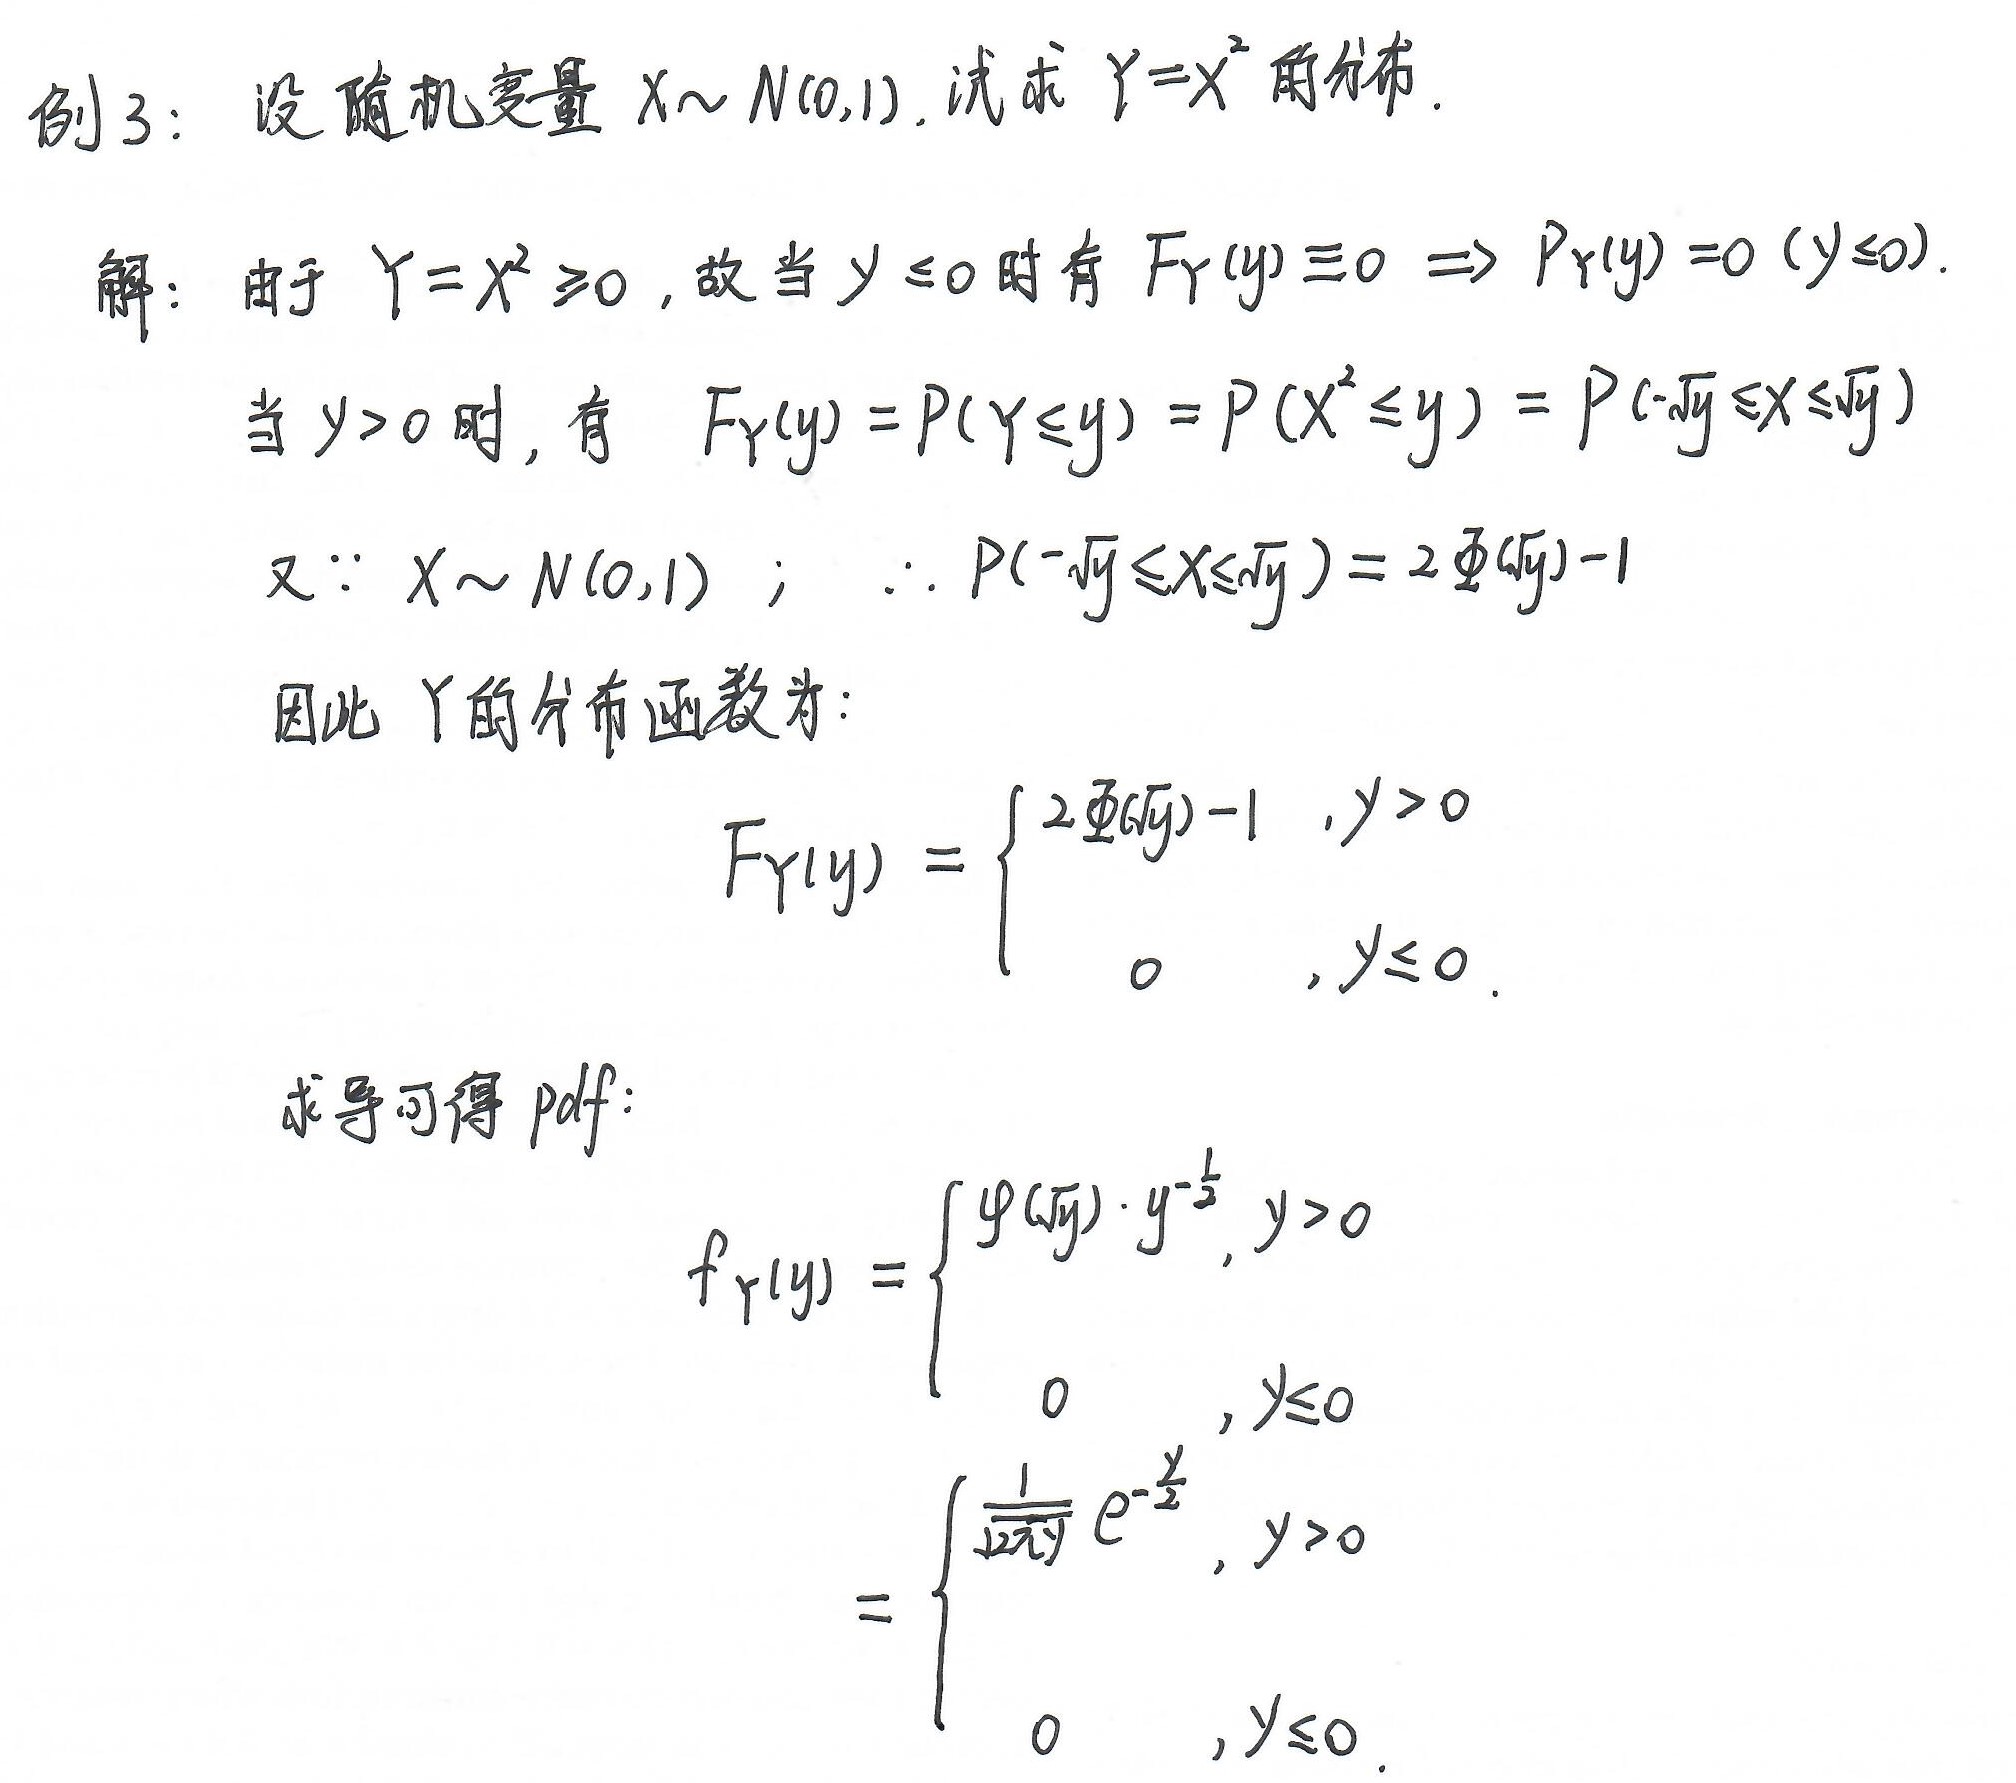 例3: 设随机变量 X~N(0,1). 试求 Y=X² 的分布.
解: 由于 Y=X²≥0, 故当 y≤0 时有 F_Y(y)≡0 ⇒ P_Y(y)=0 (y≤0).
当 y>0 时, 有 F_Y(y)=P(Y≤y)=P(X²≤y)=P(-√y≤X≤√y)
又∵ X~N(0,1) ; ∴ P(-√y≤X≤√y)=2Φ(√y)-1
因此 Y的分布函数为:
F_Y(y) = { 2Φ(√y)-1 , y>0
0 , y≤0.
求导可得 pdf:
f_Y(y) = { φ(√y)·y^{-1/2}, y>0
0 , y≤0
= { 1/√(2πy) e^{-y/2} , y>0
0 , y≤0.